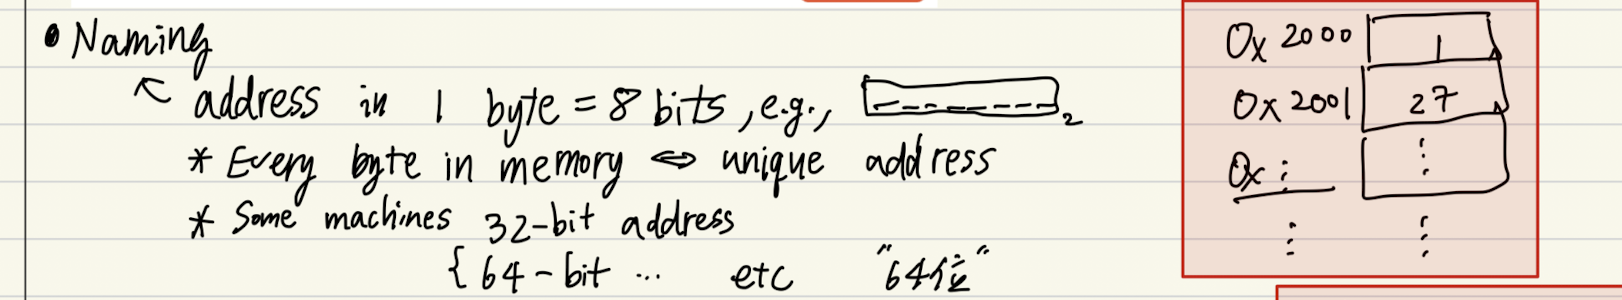 • Naming
↖ address in 1 byte = 8 bits, e.g., ________₂
* Every byte in memory ⇔ unique address
* Some machines 32-bit address
{ 64-bit ... etc "64位"
0x 2000 1
0x 2001 27
0x ⋮ ⋮
⋮ ⋮